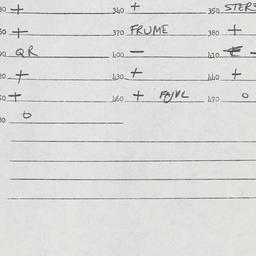 30 + 340 + 350 STERS
60 + 370 FRUME 380 +
90 QR 400 — 410
20 + 430 + 440 +
50 + 460 + FAJVL 470 o
80 o